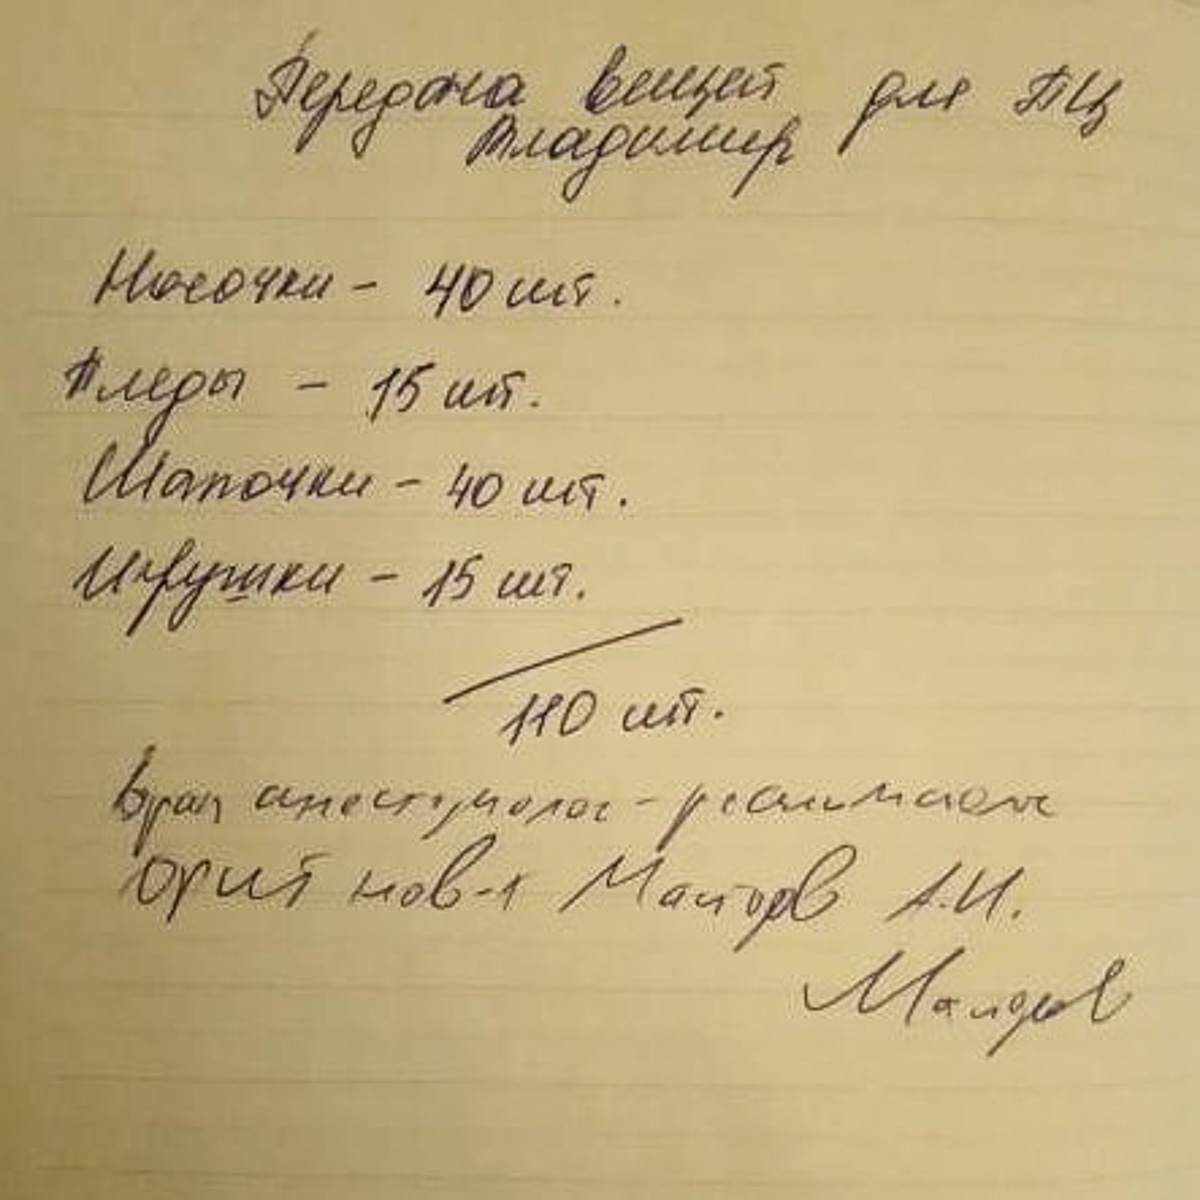 Передача вещей для ПЦ
Владимир
Носочки - 40 шт.
Пледы - 15 шт.
Шапочки - 40 шт.
Игрушки - 15 шт.
110 шт.
Врач анестезиолог-реаниматолог
ОРИТ нов-х А.И.